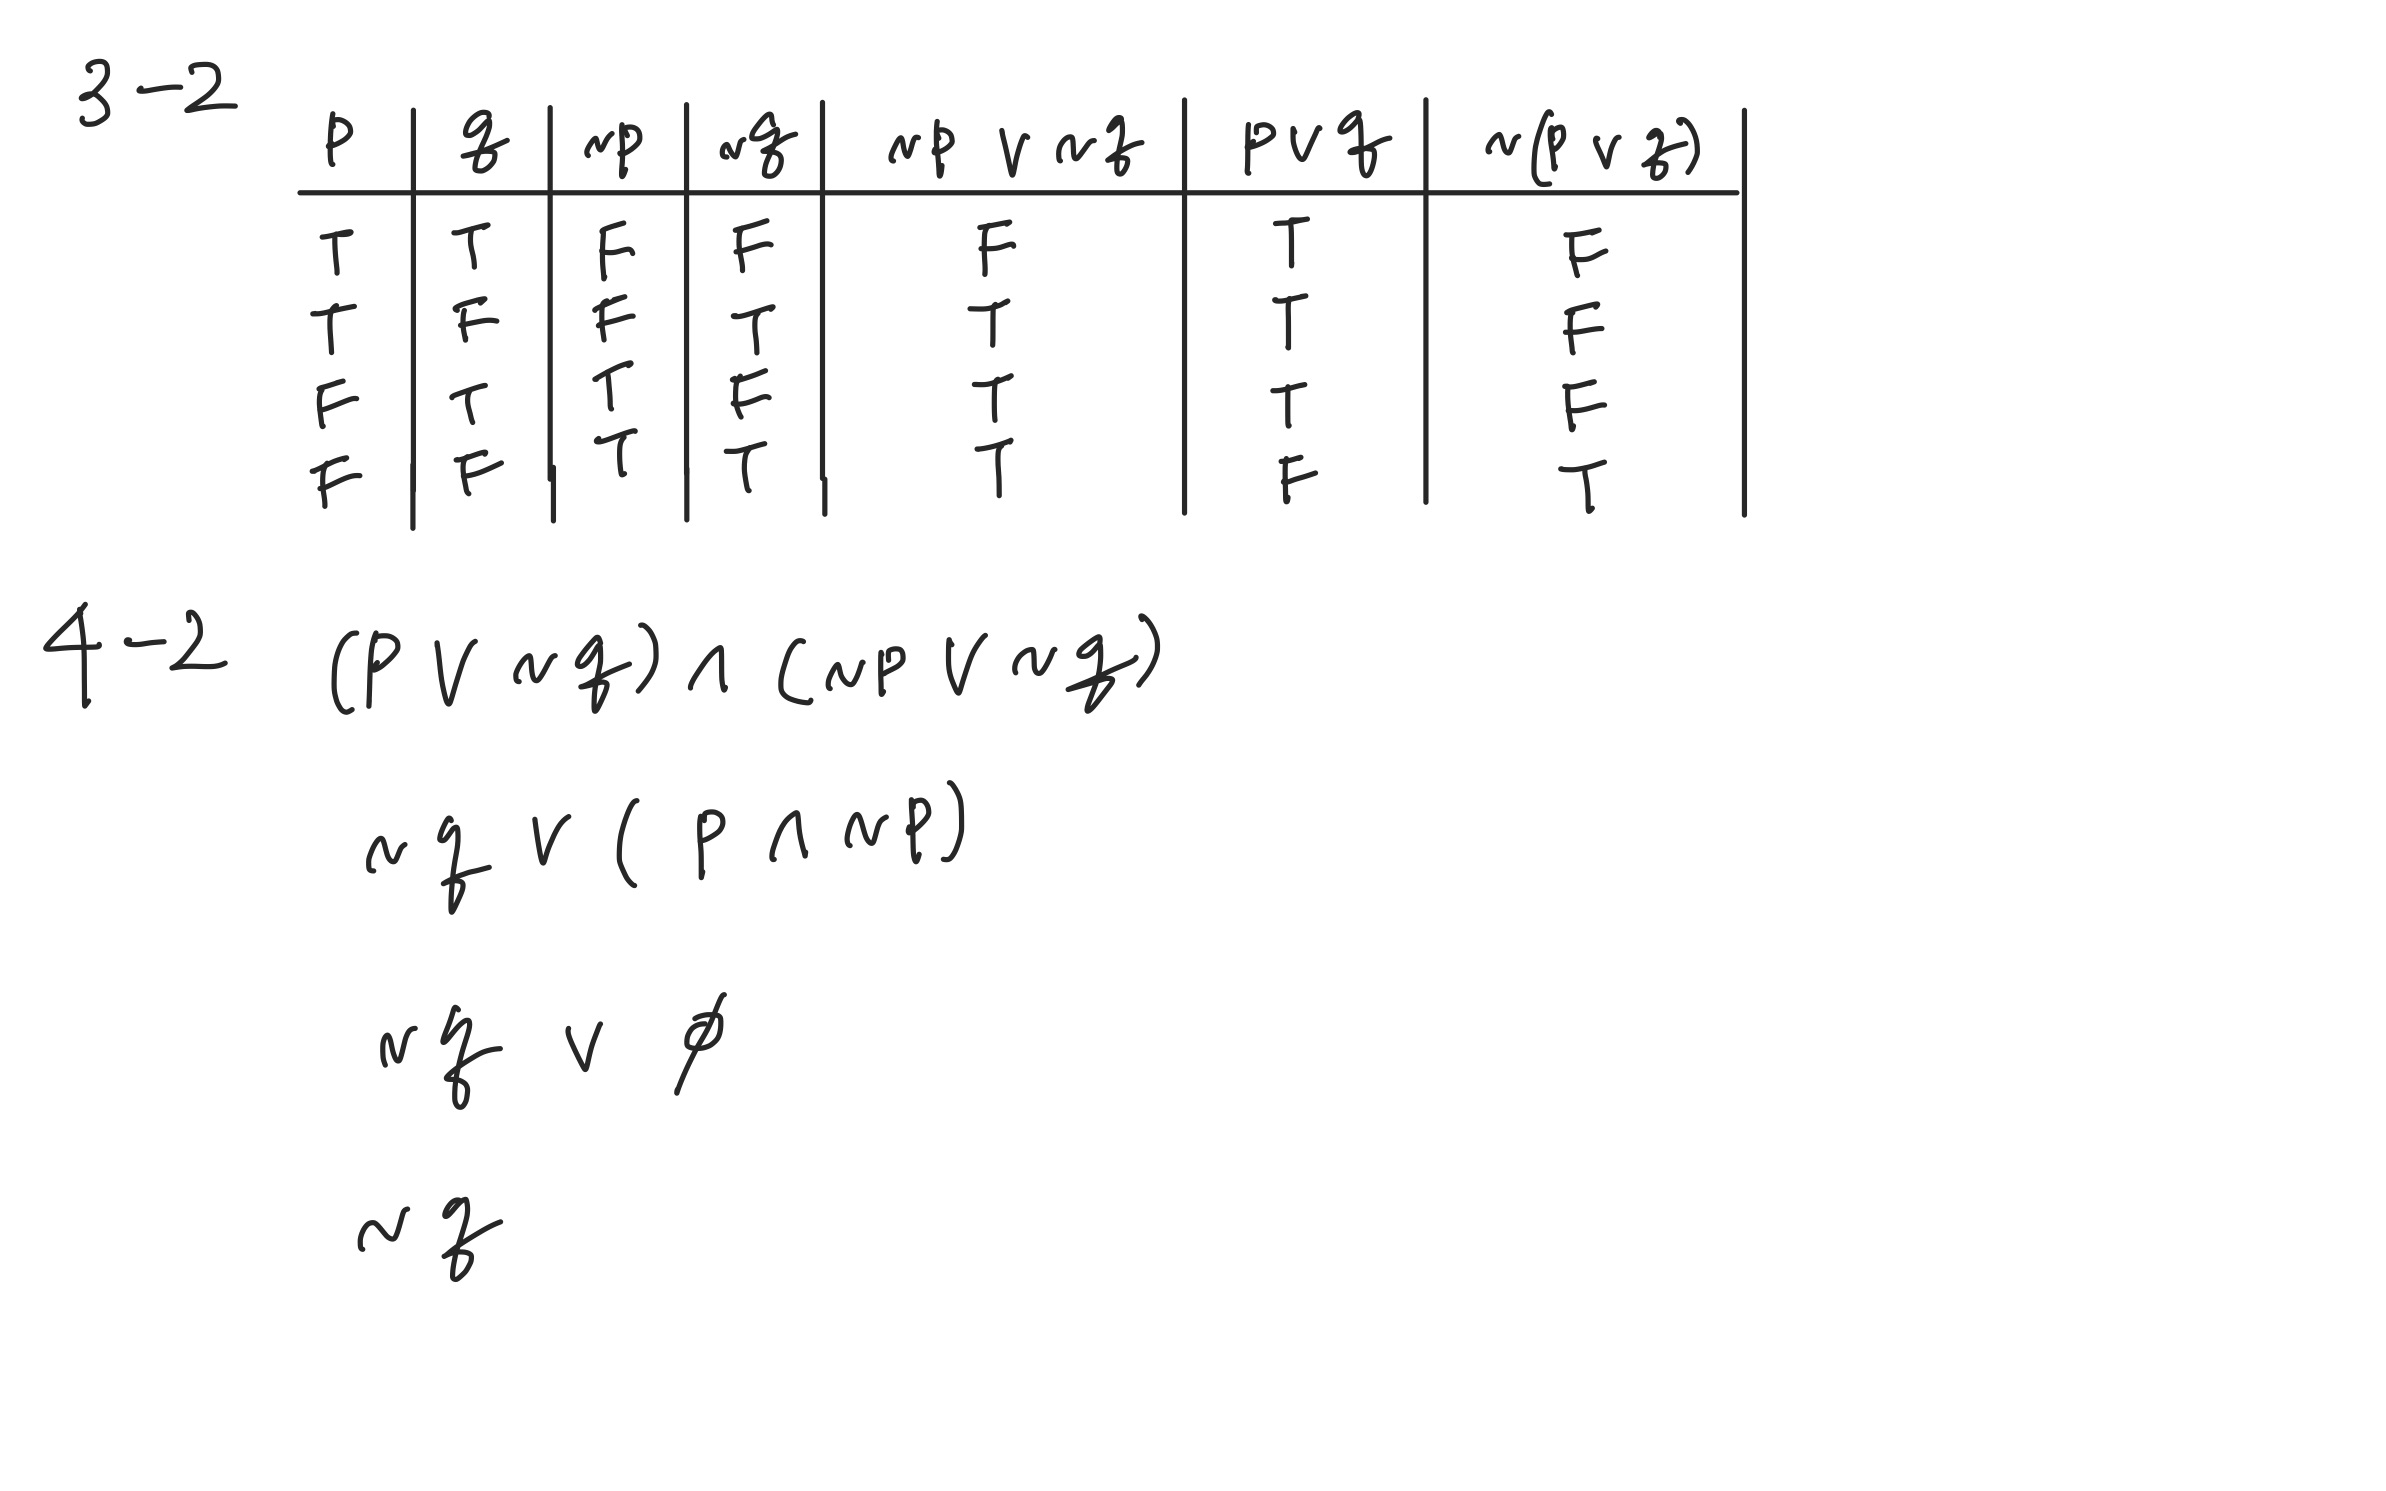 3-2
p q ~p ~q ~p ∨ ~q p∨q ~(p∨q)
T T F F F T F
T F F T T T F
F T T F T T F
F F T T T F T
4-2 (p ∨ ~q) ∧ (~p ∨ ~q)
~q ∨ (p ∧ ~p)
~q ∨ ∅
~q